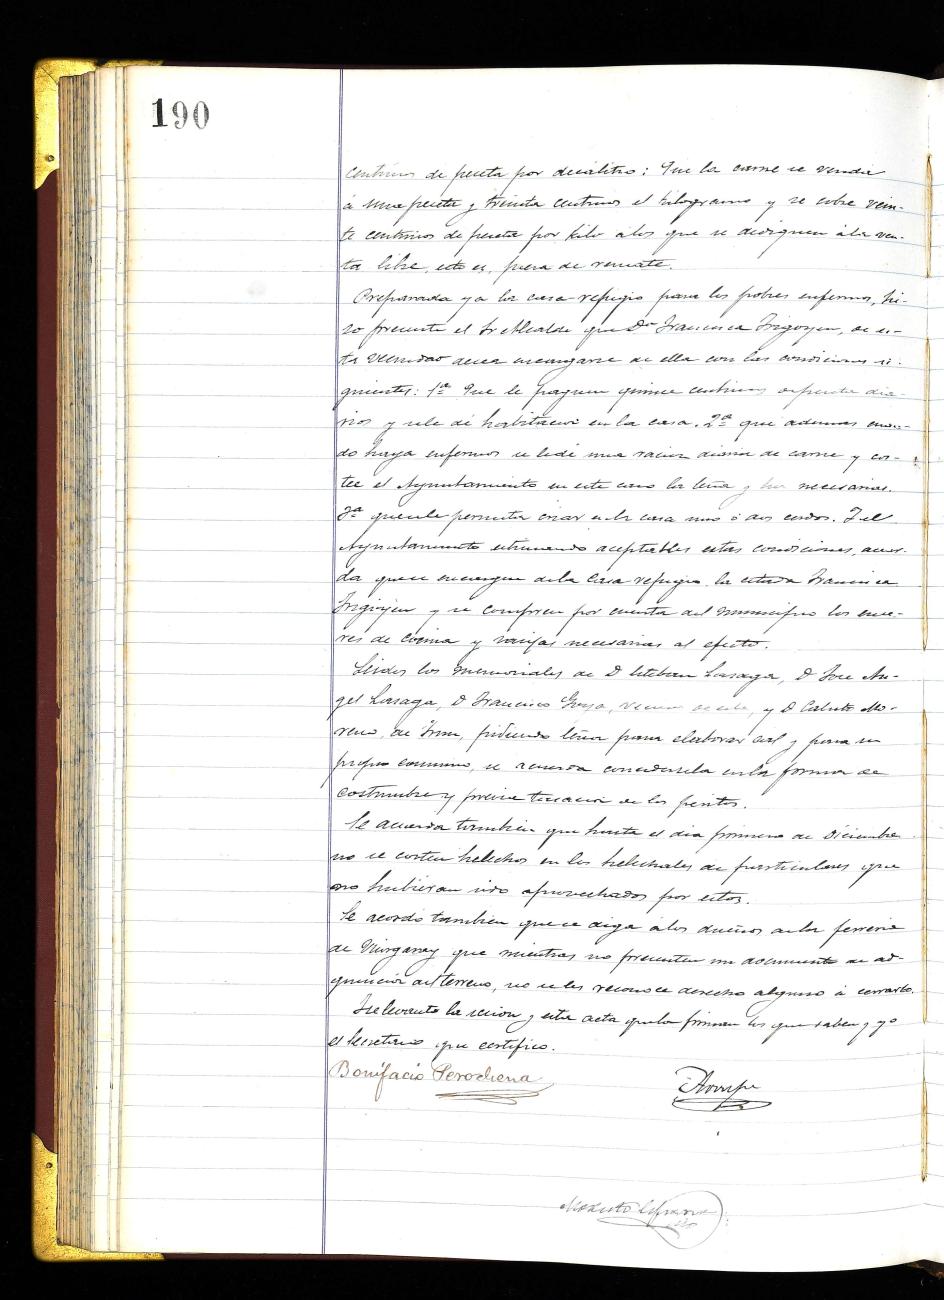 190
centimos de peseta por decálitro: Que la carne se venda
á una peseta y treinta centimos el kilogramo y se cobre vein-
te centimos de peseta por kilo a los que se dediquen á la ven-
ta libre, esto es, fuera de remate.
Preparada ya la casa-refugio para los pobres enfermos, hi-
zo presente el Sr Alcalde que Dª Francisca Irigoyen, de es-
ta vecindad desea encargarse de ella con las condiciones si-
guientes: 1ª Que le paguen quince centimos de peseta dia-
rios y se le dé habitacion en la casa. 2ª que ademas cuan-
do haya enfermos se le dé una racion diaria de carne y cos-
tee el Ayuntamiento en este caso la leña y luz necesarias.
3ª que se le permita criar en la casa uno ó dos cerdos. Y el
Ayuntamiento estimando aceptables estas condiciones, acuer-
da que se encargue de la Casa-refugio la citada Francisca
Irigoyen y se compren por cuenta del municipio los ense-
res de cocina y necesarias al efecto.
Leidos los memoriales de D Esteban Lasaga, D Jose An-
gel Lasaga, D Francisco Goya, vecinos de esta, y D Calisto Mo-
reno, de Irun, pidiendo leña para elaborar cal y para su
propio consumo, se acuerda concedersela en la forma de
costumbre y previa tasacion de los peritos.
Se acuerda tambien que hasta el dia primero de Diciembre
no se corten helechos en los helechales de particulares que
no hubieran sido aprovechados por estos.
Se acordó tambien que se diga á los dueños de la ferreria
de que mientras no presenten un documento de ad-
quisicion del terreno, no se les reconoce derecho alguno á cerrarlo.
Se levanta la sesion y esta acta que la firman los que saben y yo
el Secretario que certifico.
Bonifacio Perochena
Modesto